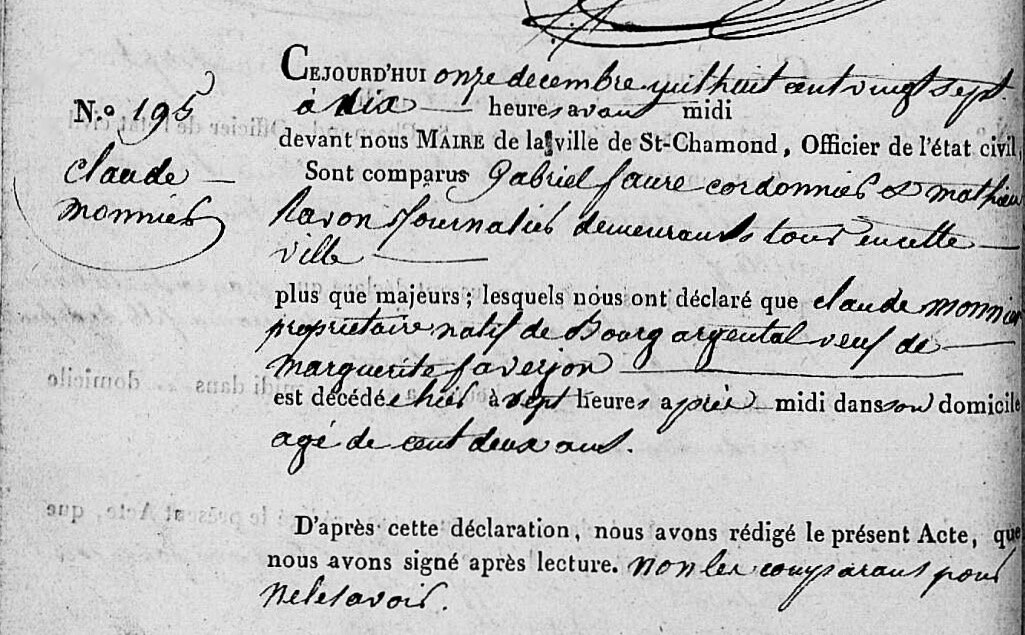 CEJOURD'HUI onze decembre mil huit cent vingt sept
N.o 195
à dix heures avant midi
devant nous MAIRE de la ville de St-Chamond, Officier de l'état civil,
claude
monnier
Sont comparus Gabriel faure cordonnier & mathieu
journalier demeurants tous en cette
ville
plus que majeurs; lesquels nous ont déclaré que claude monnier
proprietaire natif de Bourg argental veuf de
marguerite faverjon
est décédé hier à sept heures après midi dans son domicile
agé de cent deux ans.
D'après cette déclaration, nous avons rédigé le présent Acte, que
nous avons signé après lecture. non les comparants pour
ne le savoir.